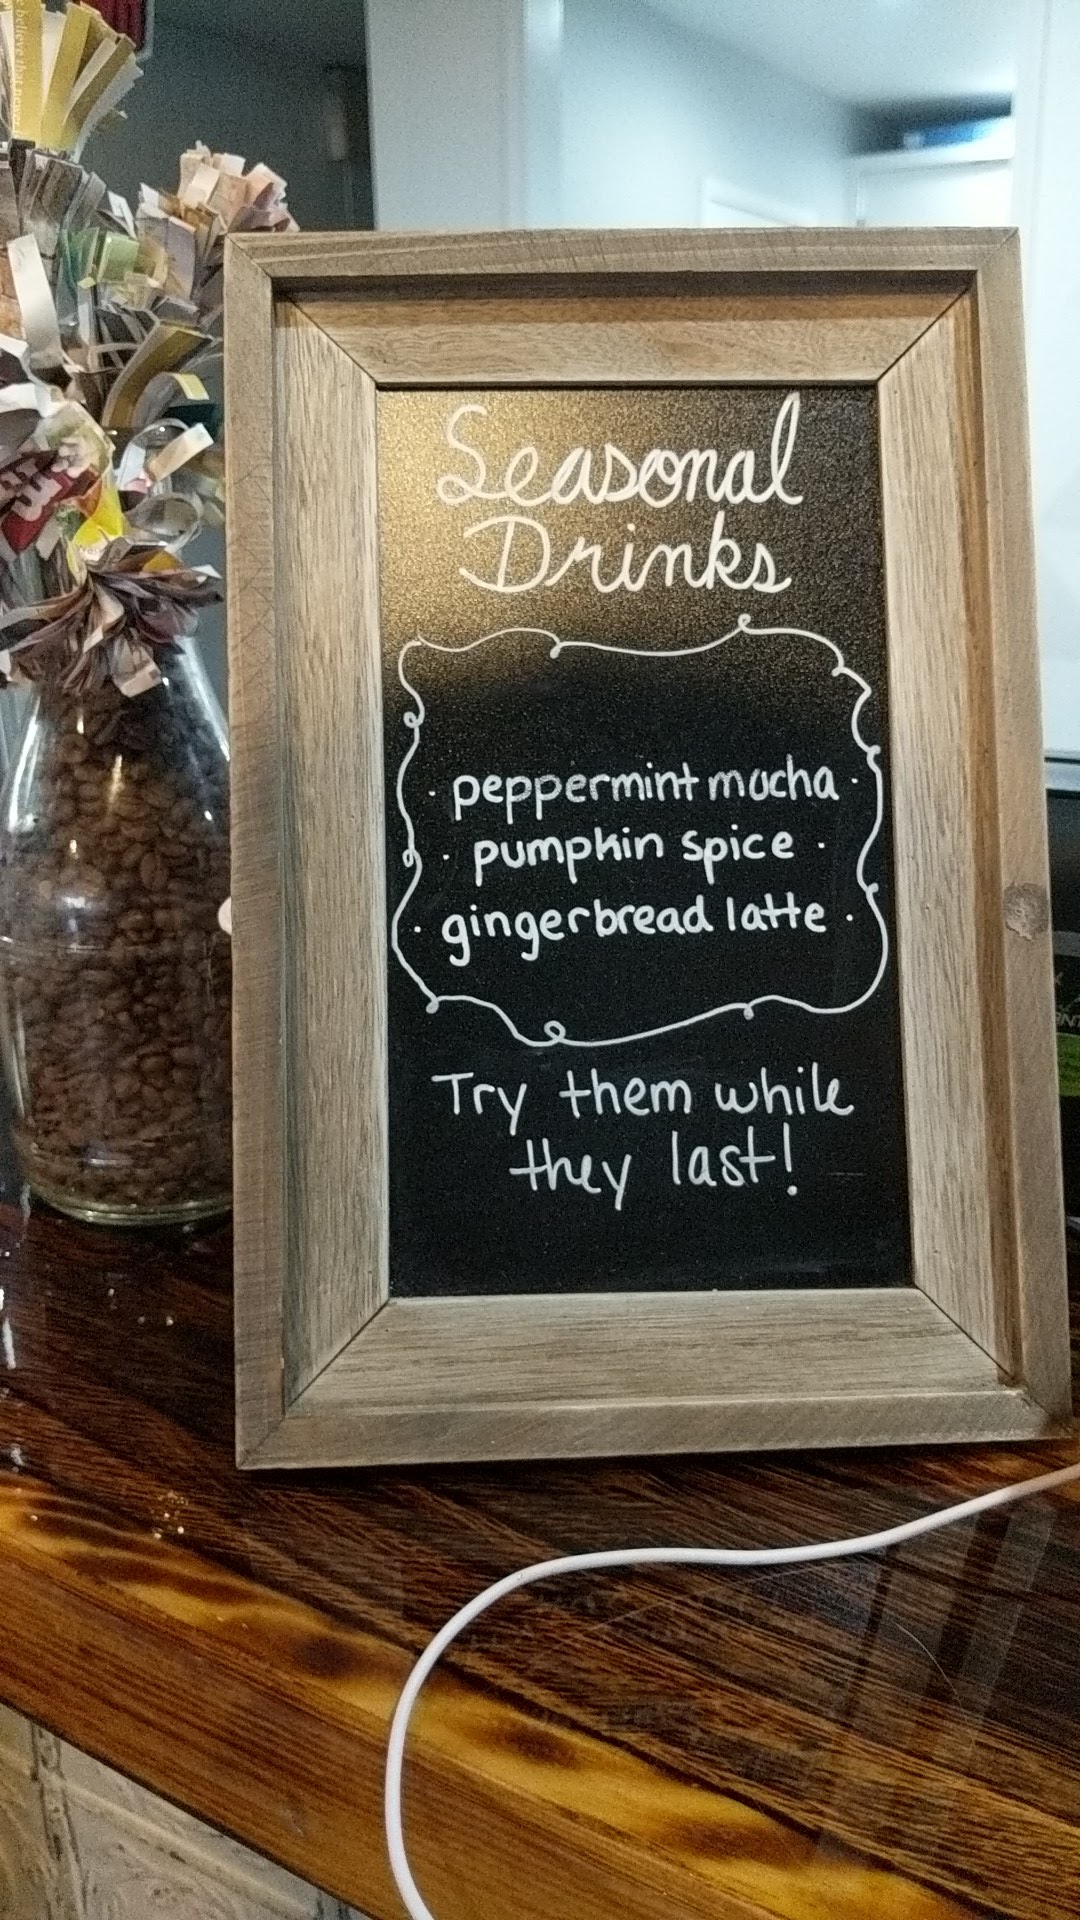 Seasonal
Drinks
· peppermint mocha ·
· pumpkin spice ·
· gingerbread latte ·
Try them while
they last!